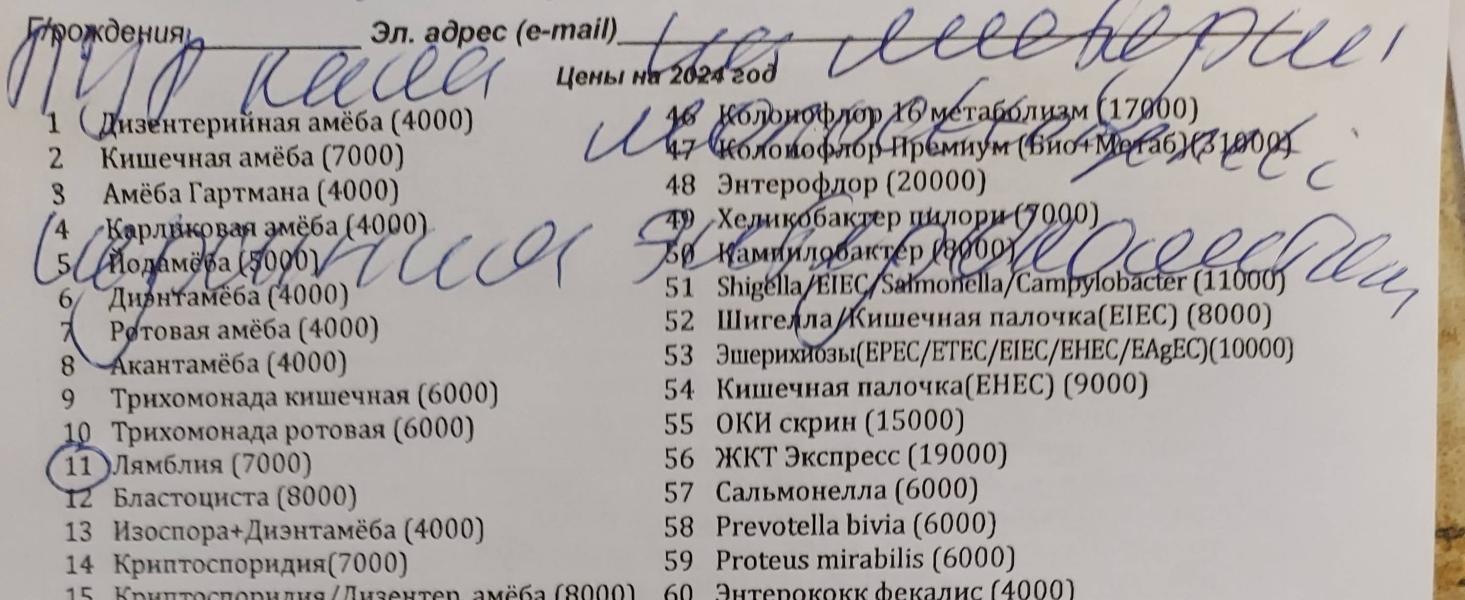 Г/рождения Эл. адрес (e-mail)
ПЦР кала на
Цены на 2024 год
1 Дизентерийная амёба (4000)
2 Кишечная амёба (7000)
3 Амёба Гартмана (4000)
4 Карликовая амёба (4000)
5 Йодамёба (5000)
6 Диэнтамёба (4000)
7 Ротовая амёба (4000)
8 Акантамёба (4000)
9 Трихомонада кишечная (6000)
10 Трихомонада ротовая (6000)
11 Лямблия (7000)
12 Бластоциста (8000)
13 Изоспора+Диэнтамёба (4000)
14 Криптоспоридия(7000)
15 Криптоспоридия/Дизентер. амёба (8000)
46 Колонофлор 16 метаболизм (17000)
47 Колонофлор Премиум (Био+Метаб)(31000)
48 Энтерофлор (20000)
49 Хеликобактер пилори (7000)
50 Кампилобактер (8000)
51 Shigella/EIEC/Salmonella/Campylobacter (11000)
52 Шигелла/Кишечная палочка(EIEC) (8000)
53 Эшерихиозы(EPEC/ETEC/EIEC/EHEC/EAgEC)(10000)
54 Кишечная палочка(EHEC) (9000)
55 ОКИ скрин (15000)
56 ЖКТ Экспресс (19000)
57 Сальмонелла (6000)
58 Prevotella bivia (6000)
59 Proteus mirabilis (6000)
60 Энтерококк фекалис (4000)